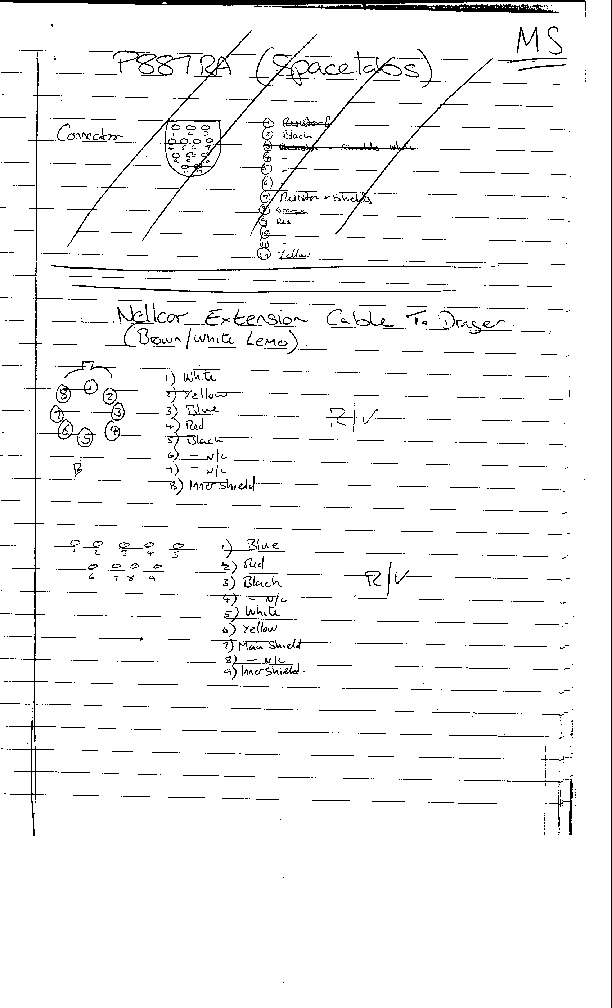 MS
P88TRA (Spacelabs)
Connector
Black
Resistor + Shields
Orange
Red
Yellow
Nellcor Extension Cable To Drager
(Brown/White Lemo)
1) White
2) Yellow
3) Blue
4) Red
5) Black
6) - N/C
7) - N/C
8) Inner Shield
1
2
3
4
5
6
7
8
R/V
1 2 3 4 5
6 7 8 9
1) Blue
2) Red
3) Black
4) - N/C
5) White
6) Yellow
7) Main Shield
8) - N/C
9) Inner Shield
R/V